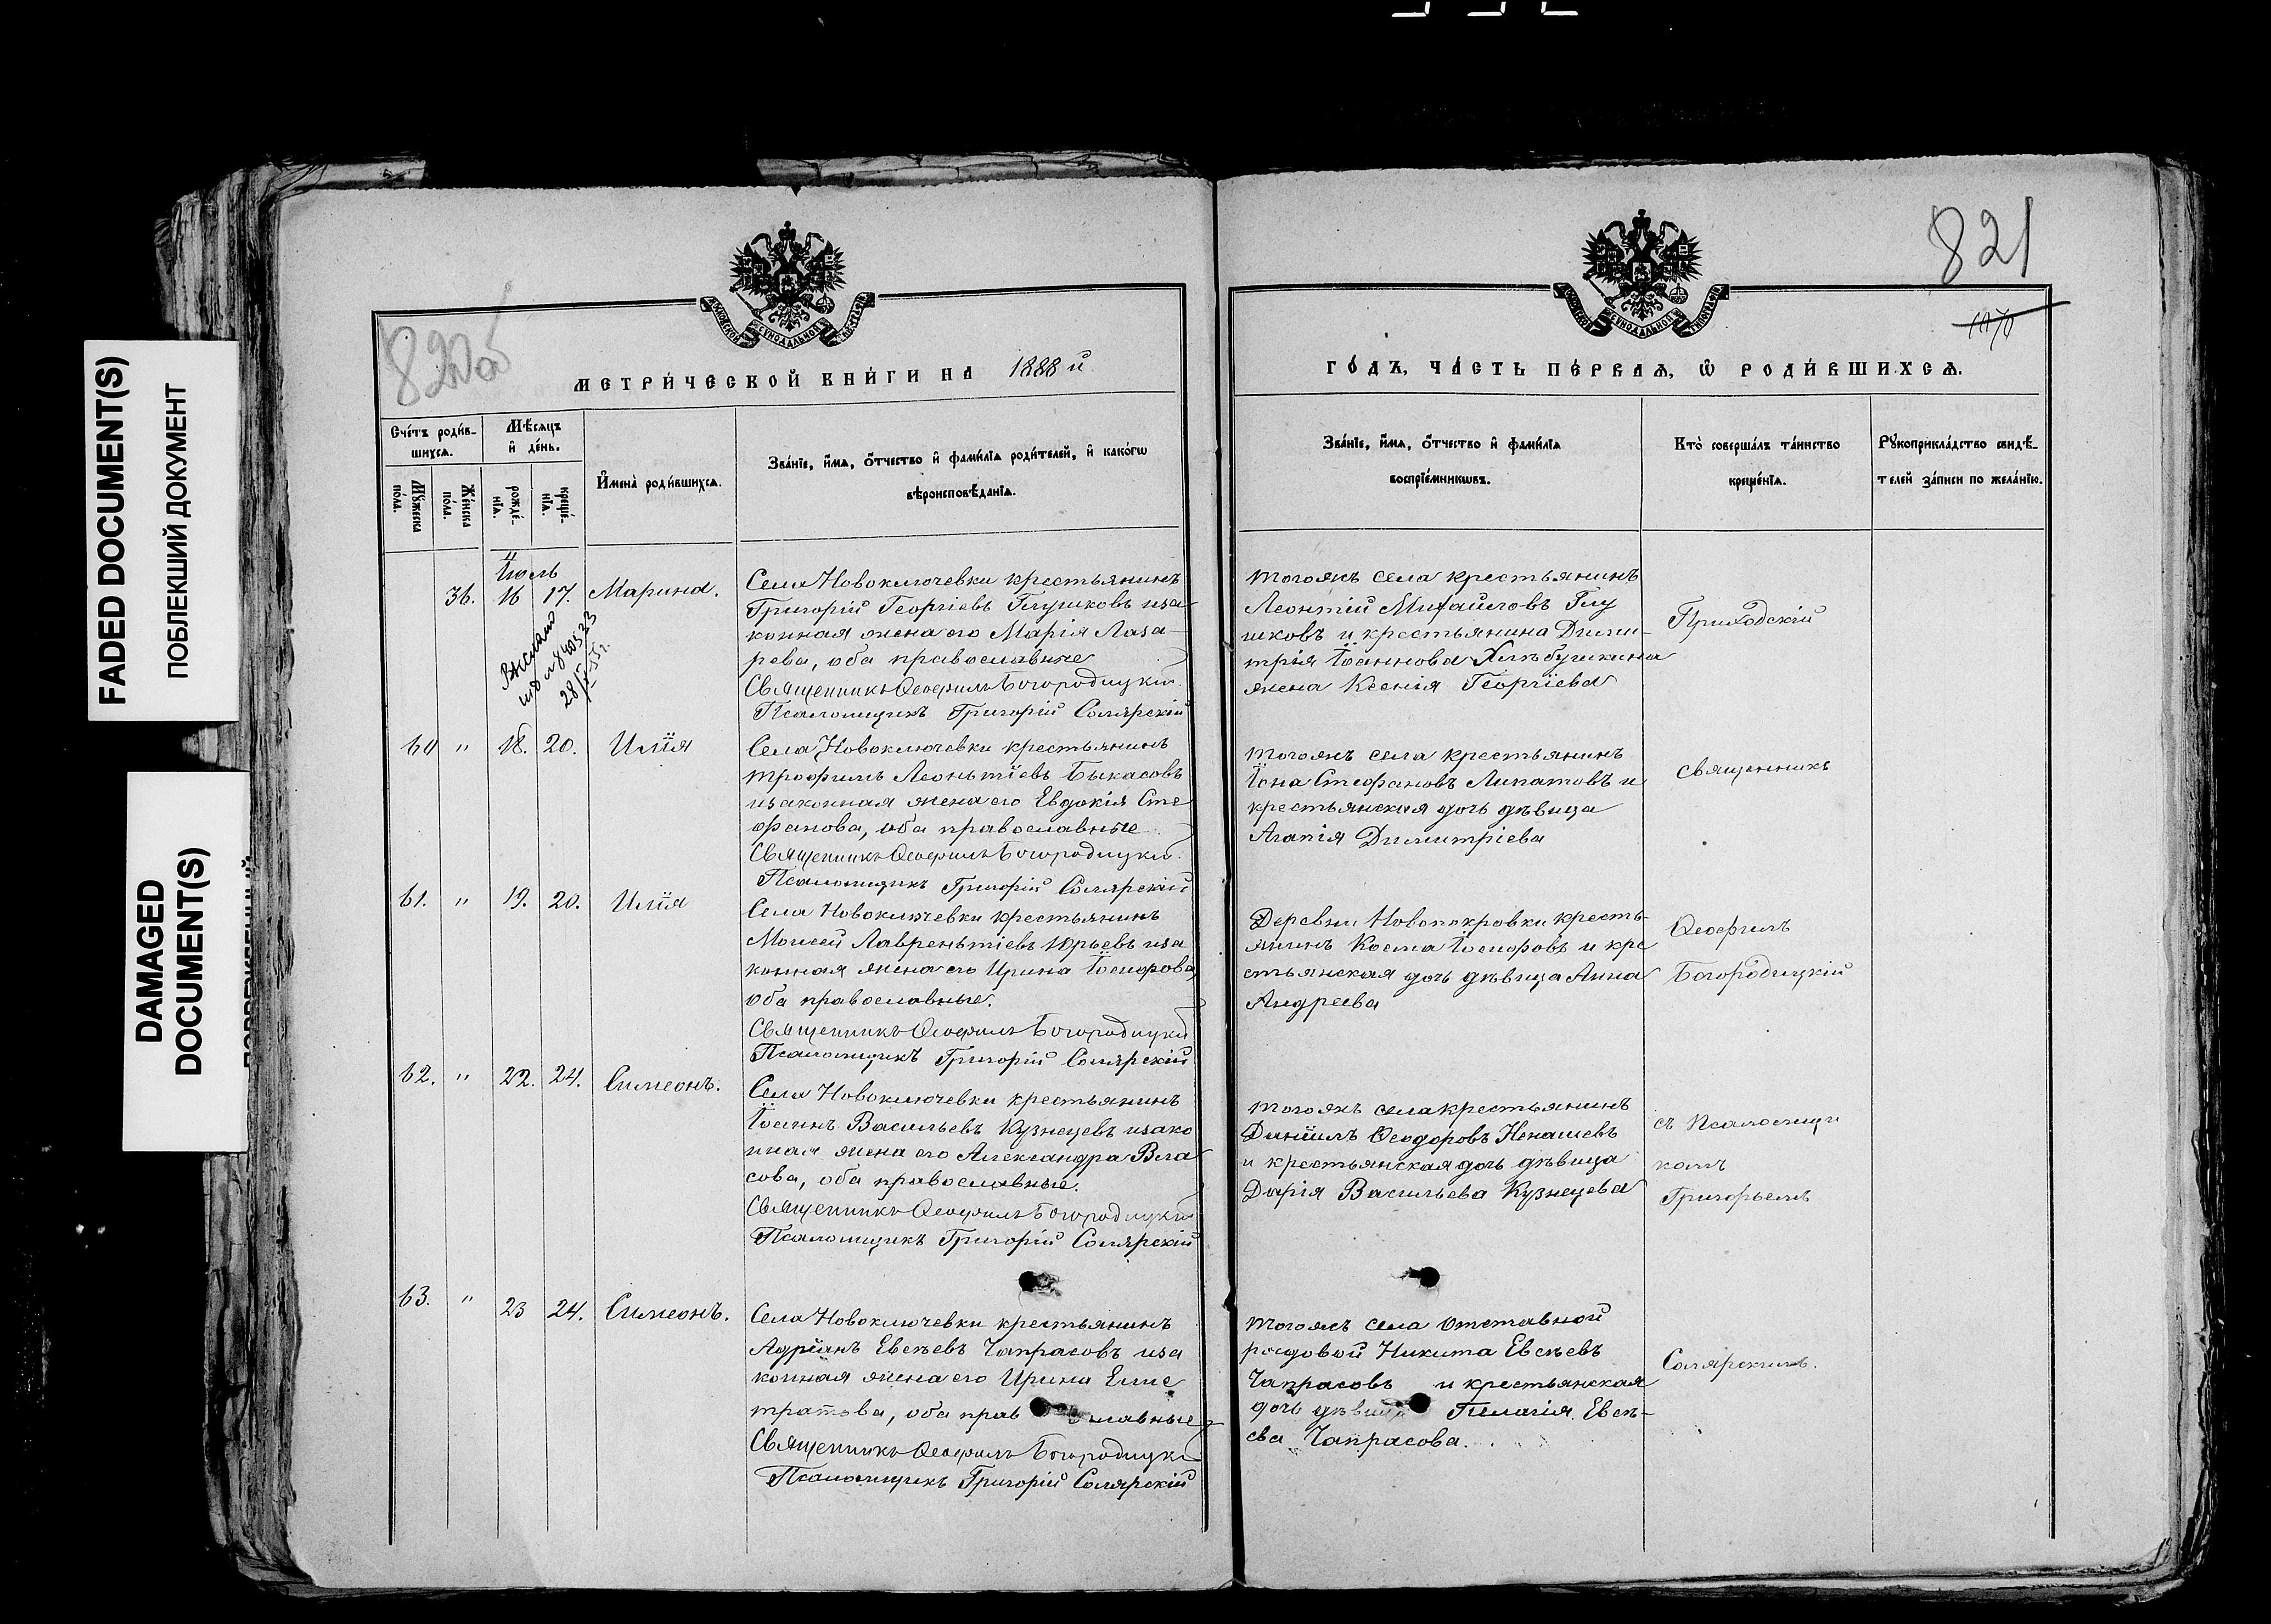 FADED DOCUMENT(S)
ПОБЛЕКШИЙ ДОКУМЕНТ
DAMAGED
DOCUMENT(S)
821
1070
820об
МЕТРИ́ЧЕСКОЙ КНИ́ГИ НА 1888 й
ГО́ДЪ, ЧА́СТЬ ПЕ́РВАѦ, Ѡ РОДИ́ВШИХСѦ.
Сче́тъ роди́в-
шихсѧ.
Мꙋ́жеска
по́ла.
Же́нска
по́ла.
Мѣ́сѧцъ
и де́нь.
рожде́-
нїѧ.
креще́-
нїѧ.
И҆мена̀ роди́вшихсѧ.
Зва́нїе, и҆́мѧ, ѻ҆́тчество и҆ фами́лїѧ роди́телей, и҆ како́гѡ
вѣроисповѣ́данїѧ.
Зва́нїе, и҆́мѧ, ѻ҆́тчество и҆ фами́лїѧ
воспрїе́мникѡвъ.
Кто̀ соверша́лъ та́инство
креще́нїѧ.
Рꙋкоприкла́дство свидѣ́-
телей за́писи по жела́нїю.
Июль
36. 16 17. Марина.
Выслано
28/V-55 г.
Села Новоключевки крестьянинъ
Григорій Георгіевъ Глушковъ иза
конная жена его Марія Лаза-
рева, оба православные
Священникъ Ѳеофилъ Богородицкій
Псаломщикъ Григорій Солярскій
тогожъ села крестьянинъ
Леонтій Михайловъ Глу
шковъ и крестьянина Дими-
трія Іоаннова Хлѣбушкина
жена Ксенія Георгіева
Приходскій
60 " 18. 20. Илія
Села Новоключевки крестьянинъ
Трофимъ Леонтіевъ Быкасовъ
изаконная жена его Евдокія Сте
фанова, оба православные
Священникъ Ѳеофилъ Богородицкій
Псаломщикъ Григорій Солярскій
тогожъ села крестьянинъ
Іона Стефановъ Липатовъ и
крестьянская дочь дѣвица
Агапія Димитріева
священникъ
61. " 19. 20. Илія
Села Новоключевки крестьянинъ
Моисей Лаврентіевъ Юрьевъ иза
конная жена его Ирина Іосифова
оба православные.
Священникъ Ѳеофилъ Богородицкій
Псаломщикъ Григорій Солярскій
Деревни Новопокровки кресть-
янинъ Косма Іосифовъ и кре
стьянская дочь дѣвица Анна
Андреева
Ѳеофилъ
Богородицкій
62. " 22. 24. Симеонъ.
Села Новоключевки крестьянинъ
Іоаннъ Васильевъ Кузнецевъ изако
нная жена его Александра Вла
сова, оба православные.
Священникъ Ѳеофилъ Богородицкій
Псаломщикъ Григорій Солярскій
тогожъ села крестьянинъ
Даніилъ Ѳеодоровъ Ненашевъ
и крестьянская дочь дѣвица
Дарія Васильева Кузнецева
съ Псаломщи
комъ
Григорьемъ
63. " 23 24. Симеонъ.
Села Новоключевки крестьянинъ
Адріанъ Евсѣевъ Чапрасовъ иза
конная жена его Ирина Елис
тратова, оба прав славные
Священникъ Ѳеофилъ Богородицкі
Псаломщикъ Григорій Солярскій
тогожъ села отставной
рядовой Никита Евсѣевъ
Чапрасовъ и крестьянская
дочь дѣвица Пелагія Евсѣ-
ева Чапрасова.
Солярскимъ.